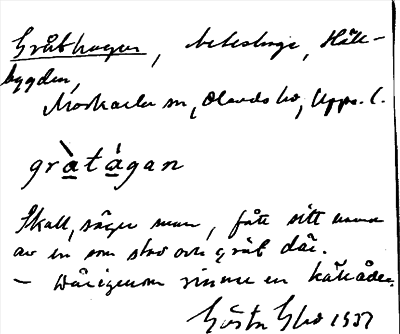 Gråthagen, beteshage, Häll-
bygden,
Morkarla sn, Olands hd, Upps. l.
gràtágan
Skall, säger man, fått sitt namn
av en som stod och grät där.
– Därigenom rinner en källåder.
Gösta 1937